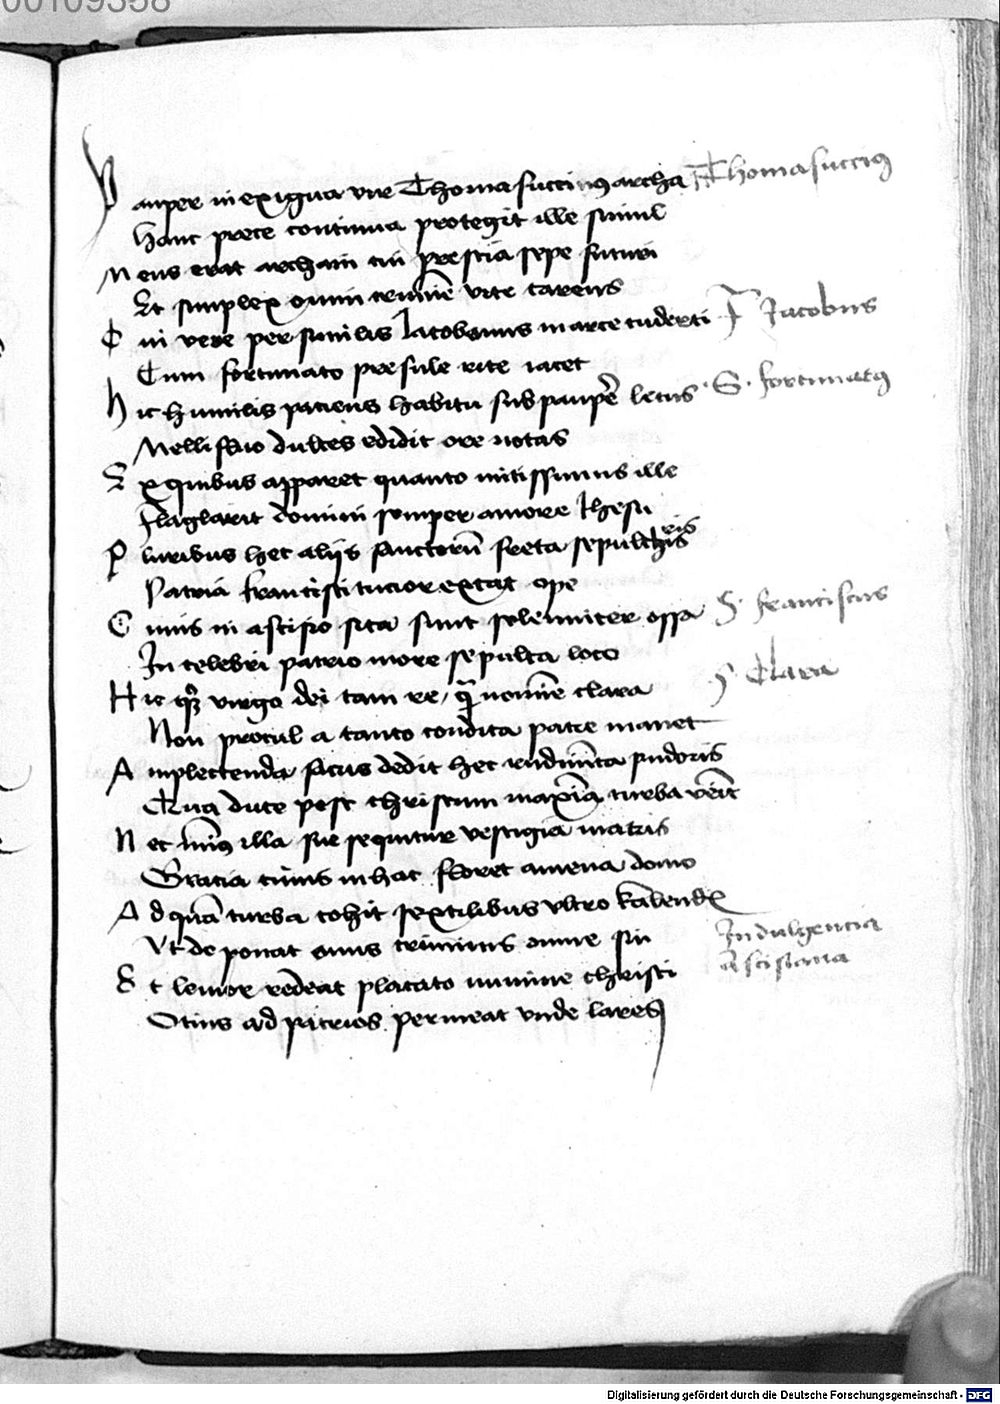 00109358
Pauper in exigua vir Thomasuccius archa
F Thomasuccius
Hanc prece continua protegit ille simul
Mens erat archam cui prescia sepe futuri
Et simplex omni crimine vite carens
Cui vere persimilis Iacobonus in arce tuderti
F Jacobus
Cum fortunato presule rite iacet
Hic humilis paciens habitu sub paupere letus
S. fortunatus
Mellifluo dulces edidit ore notas
Ex quibus apparet quanto mitissimus ille
Flaglarit domini semper amore Ihesu
Pluribus hec aliis sanctorum freta sepulchris
Patria francisci tucior extat ope
Cuius in ascisio sita sunt solemniter ossa
S. franciscus
In celebri patrio more sepulta loco
S Clara
Hic quoque virgo dei tam re quam nomine clara
Non procul a tanto condita patre manet
Amplectenda sacus dedit hec rudimenta pudoris
Qua duce post christum maxima turba venit
Nec minus illa sue sequitur vestigia matris
Gracia cuius in hac floret amena domo
Ad quam turba cohit sextilibus vltro kalendis
Vt deponat onus criminis omne sui
Indulgencia
Ascisiana
Et lenior redeat placato numine christi
Ocius ad patrios permeat vnde lares
Digitalisierung gefördert durch die Deutsche Forschungsgemeinschaft - DFG